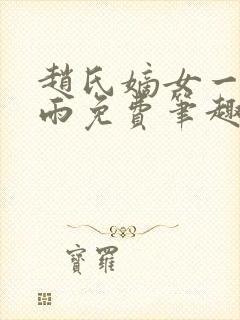 趙氏嫡女一
雨免費筆趣
寶羅